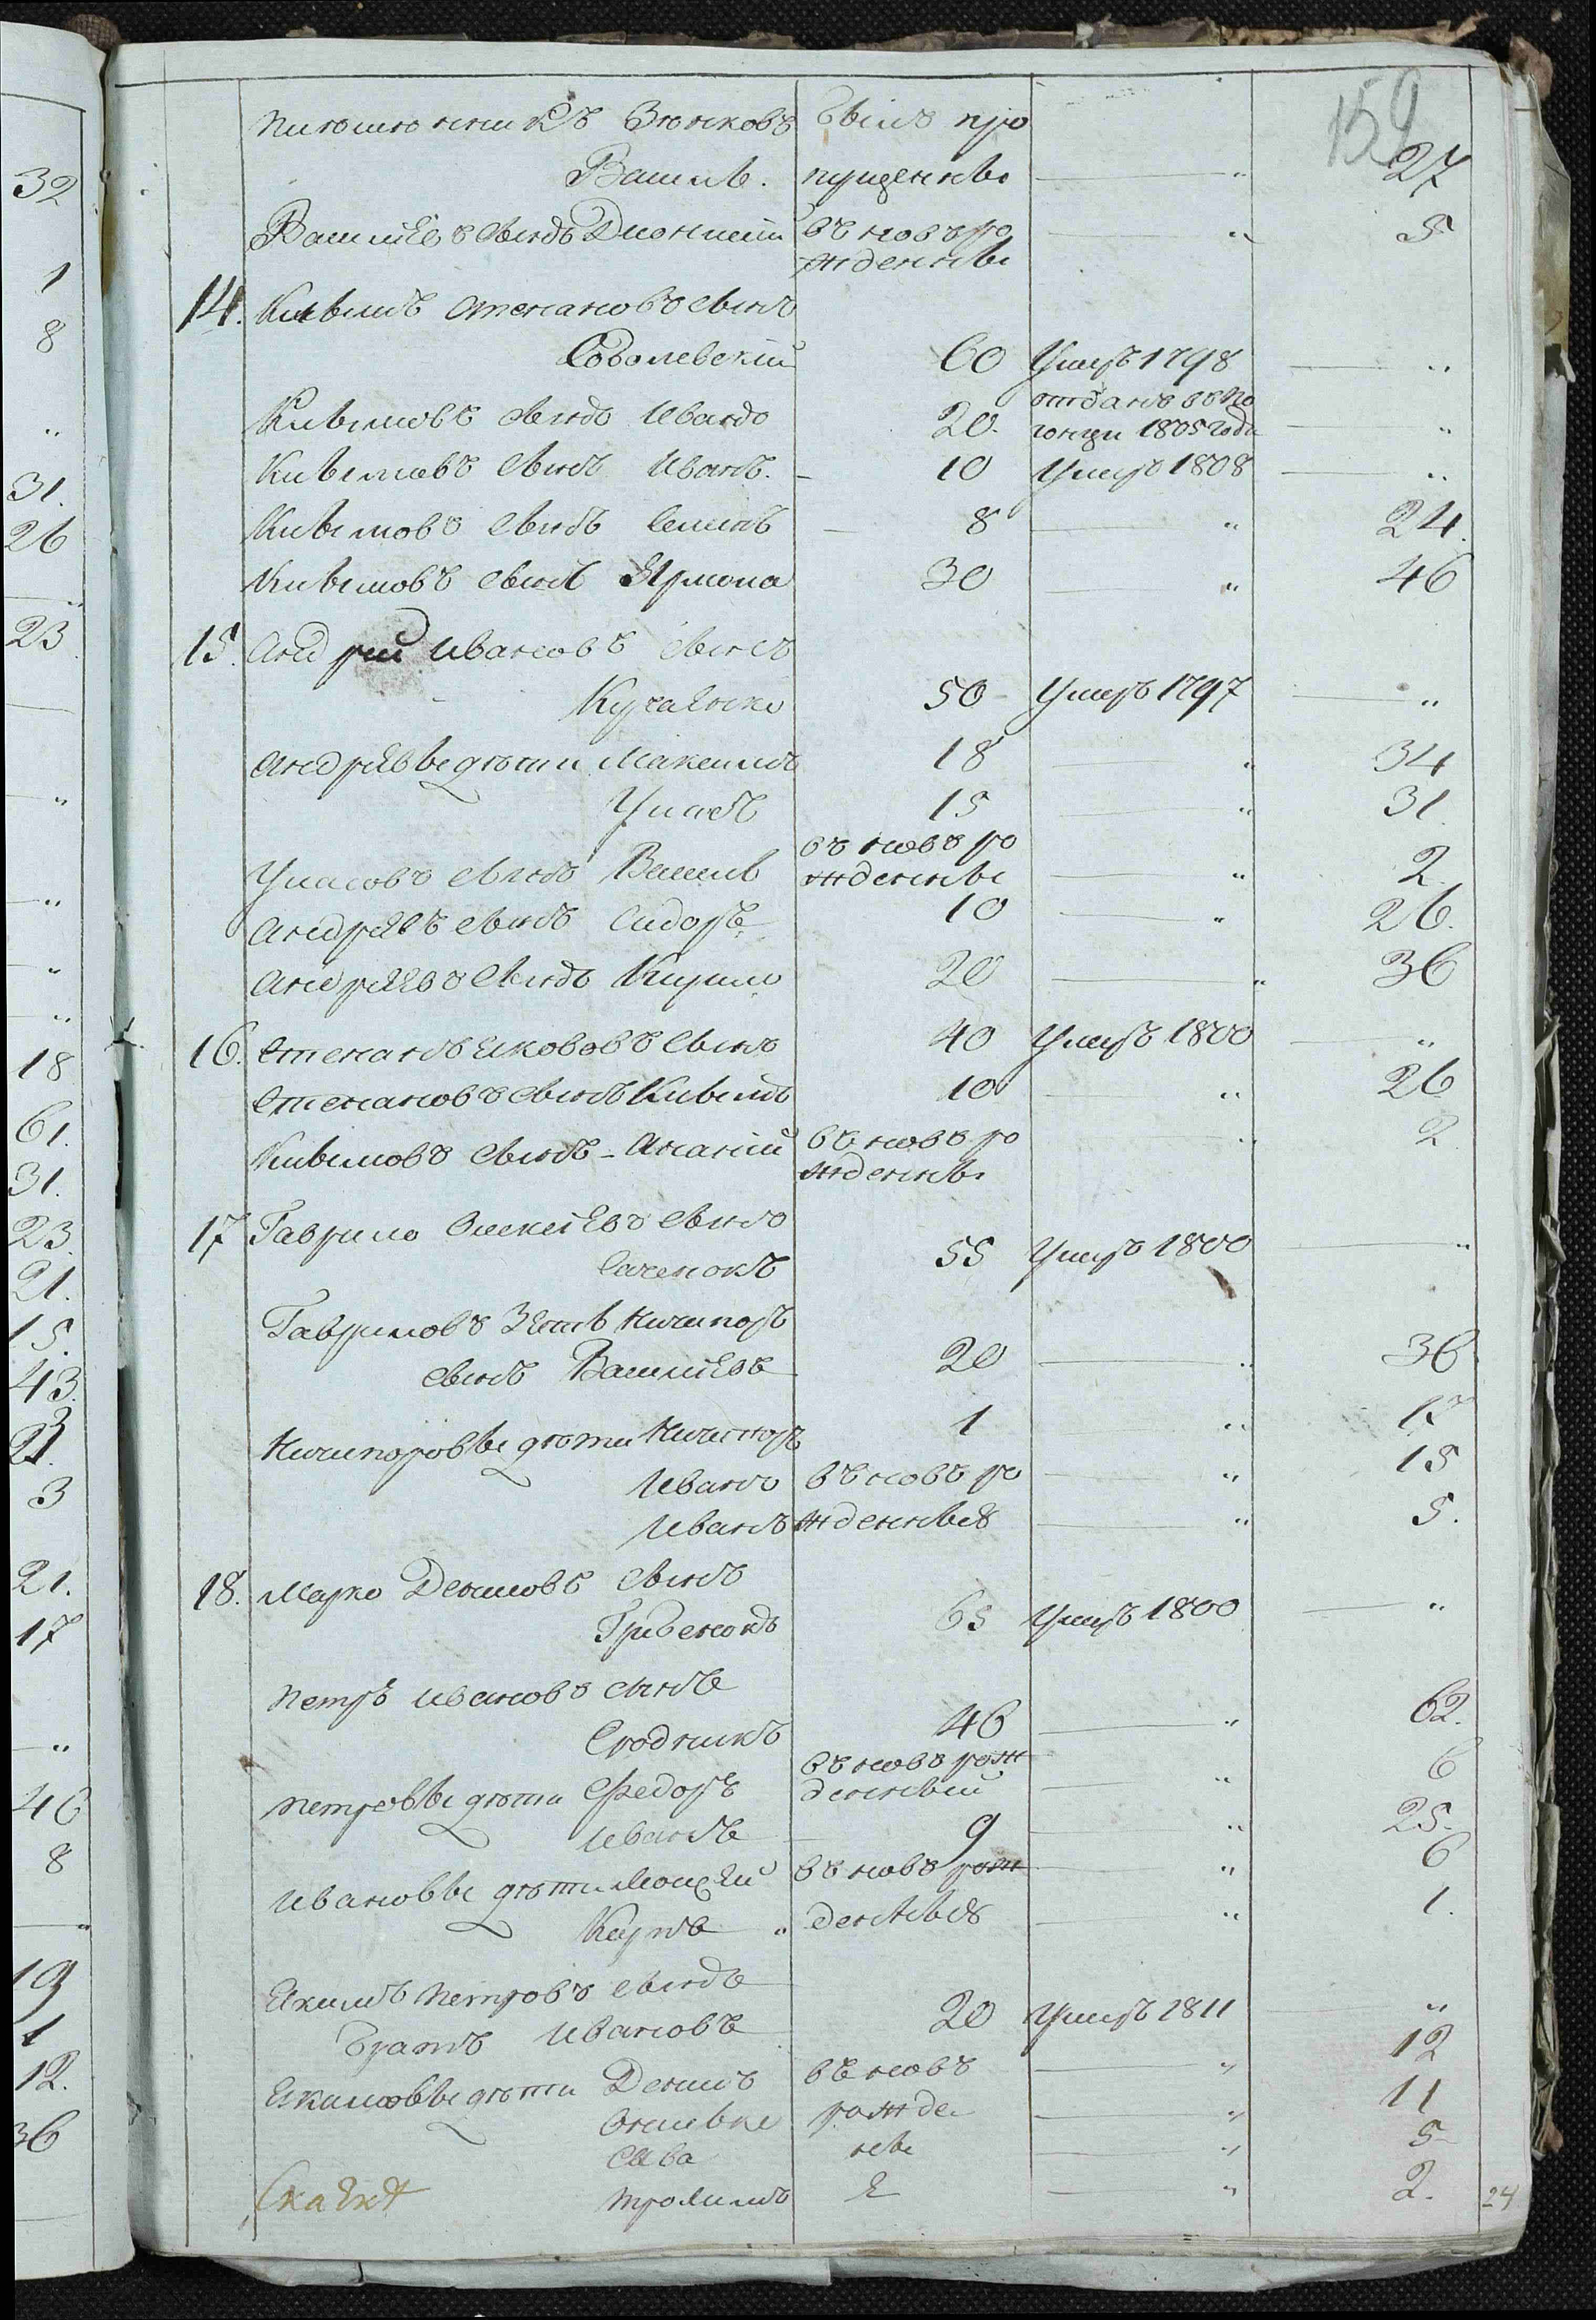 159
Зюнковъ былъ про
Василь. пущенны " 27
Васильевъ сынъ Дионисий въ новъ ро " 5
жденны
14. Климъ Степановъ сынъ
Соболевский 60 Умеръ 1798 "
отданъ въ по
Климовъ сынъ Иванъ 20. гонцы 1805 года "
Климовъ сынъ Иванъ. 10 Умеръ 1808 "
Климовъ сынъ Семенъ 8 " 24.
Климовъ сынъ Ярмола 30 " 46
15. Андрей Ивановъ сынъ
50 Умеръ 1797 "
Андреевы дѣти Максимъ 18 " 34
Уласъ 15 " 31.
въ новъ ро
Уласовъ сынъ Василь жденны " 2
Андреевъ сынъ Сидоръ 10 " 26.
Андреевъ сынъ Кирило 20 " 36
16. Степанъ Якововъ сынъ 40 Умеръ 1800 "
Степановъ сынъ Климъ 10 " 26
Климовъ сынъ Ананий въ новъ ро " 2
жденны
17 Гаврило Олексеевъ сынъ
Саченокъ 55 Умеръ 1800 "
Гавриловъ зять Ничипоръ
сынъ Васильевъ 20 " 36
Ничипоровы дѣти Ничипоръ 1 " 17
Иванъ въ новъ ро " 15
Иванъ жденныя " 5.
18. Марко Денисовъ сынъ
Грибенокъ 65 Умеръ 1800 "
Петръ Ивановъ сынъ
Сродникъ 46 " 62.
въ новъ рож
Петровы дѣти Федоръ денный " 6
Иванъ 9 " 25.
Ивановы дѣти Моисей въ новъ рож " 6
Карпъ " денныя " 1.
Якимъ Петровъ сынъ
братъ Ивановъ 20 Умеръ 1811 "
Якимовы дѣти Денисъ въ новъ " 12
рожде " 11
Сава ны " 5
Трохимъ Е " 2.
24
32
1
8
"
31.
26
"
23
"
"
"
"
18
61.
31.
23.
21.
15.
43.
3
21.
17
"
46
8
"
19
1
12.
36